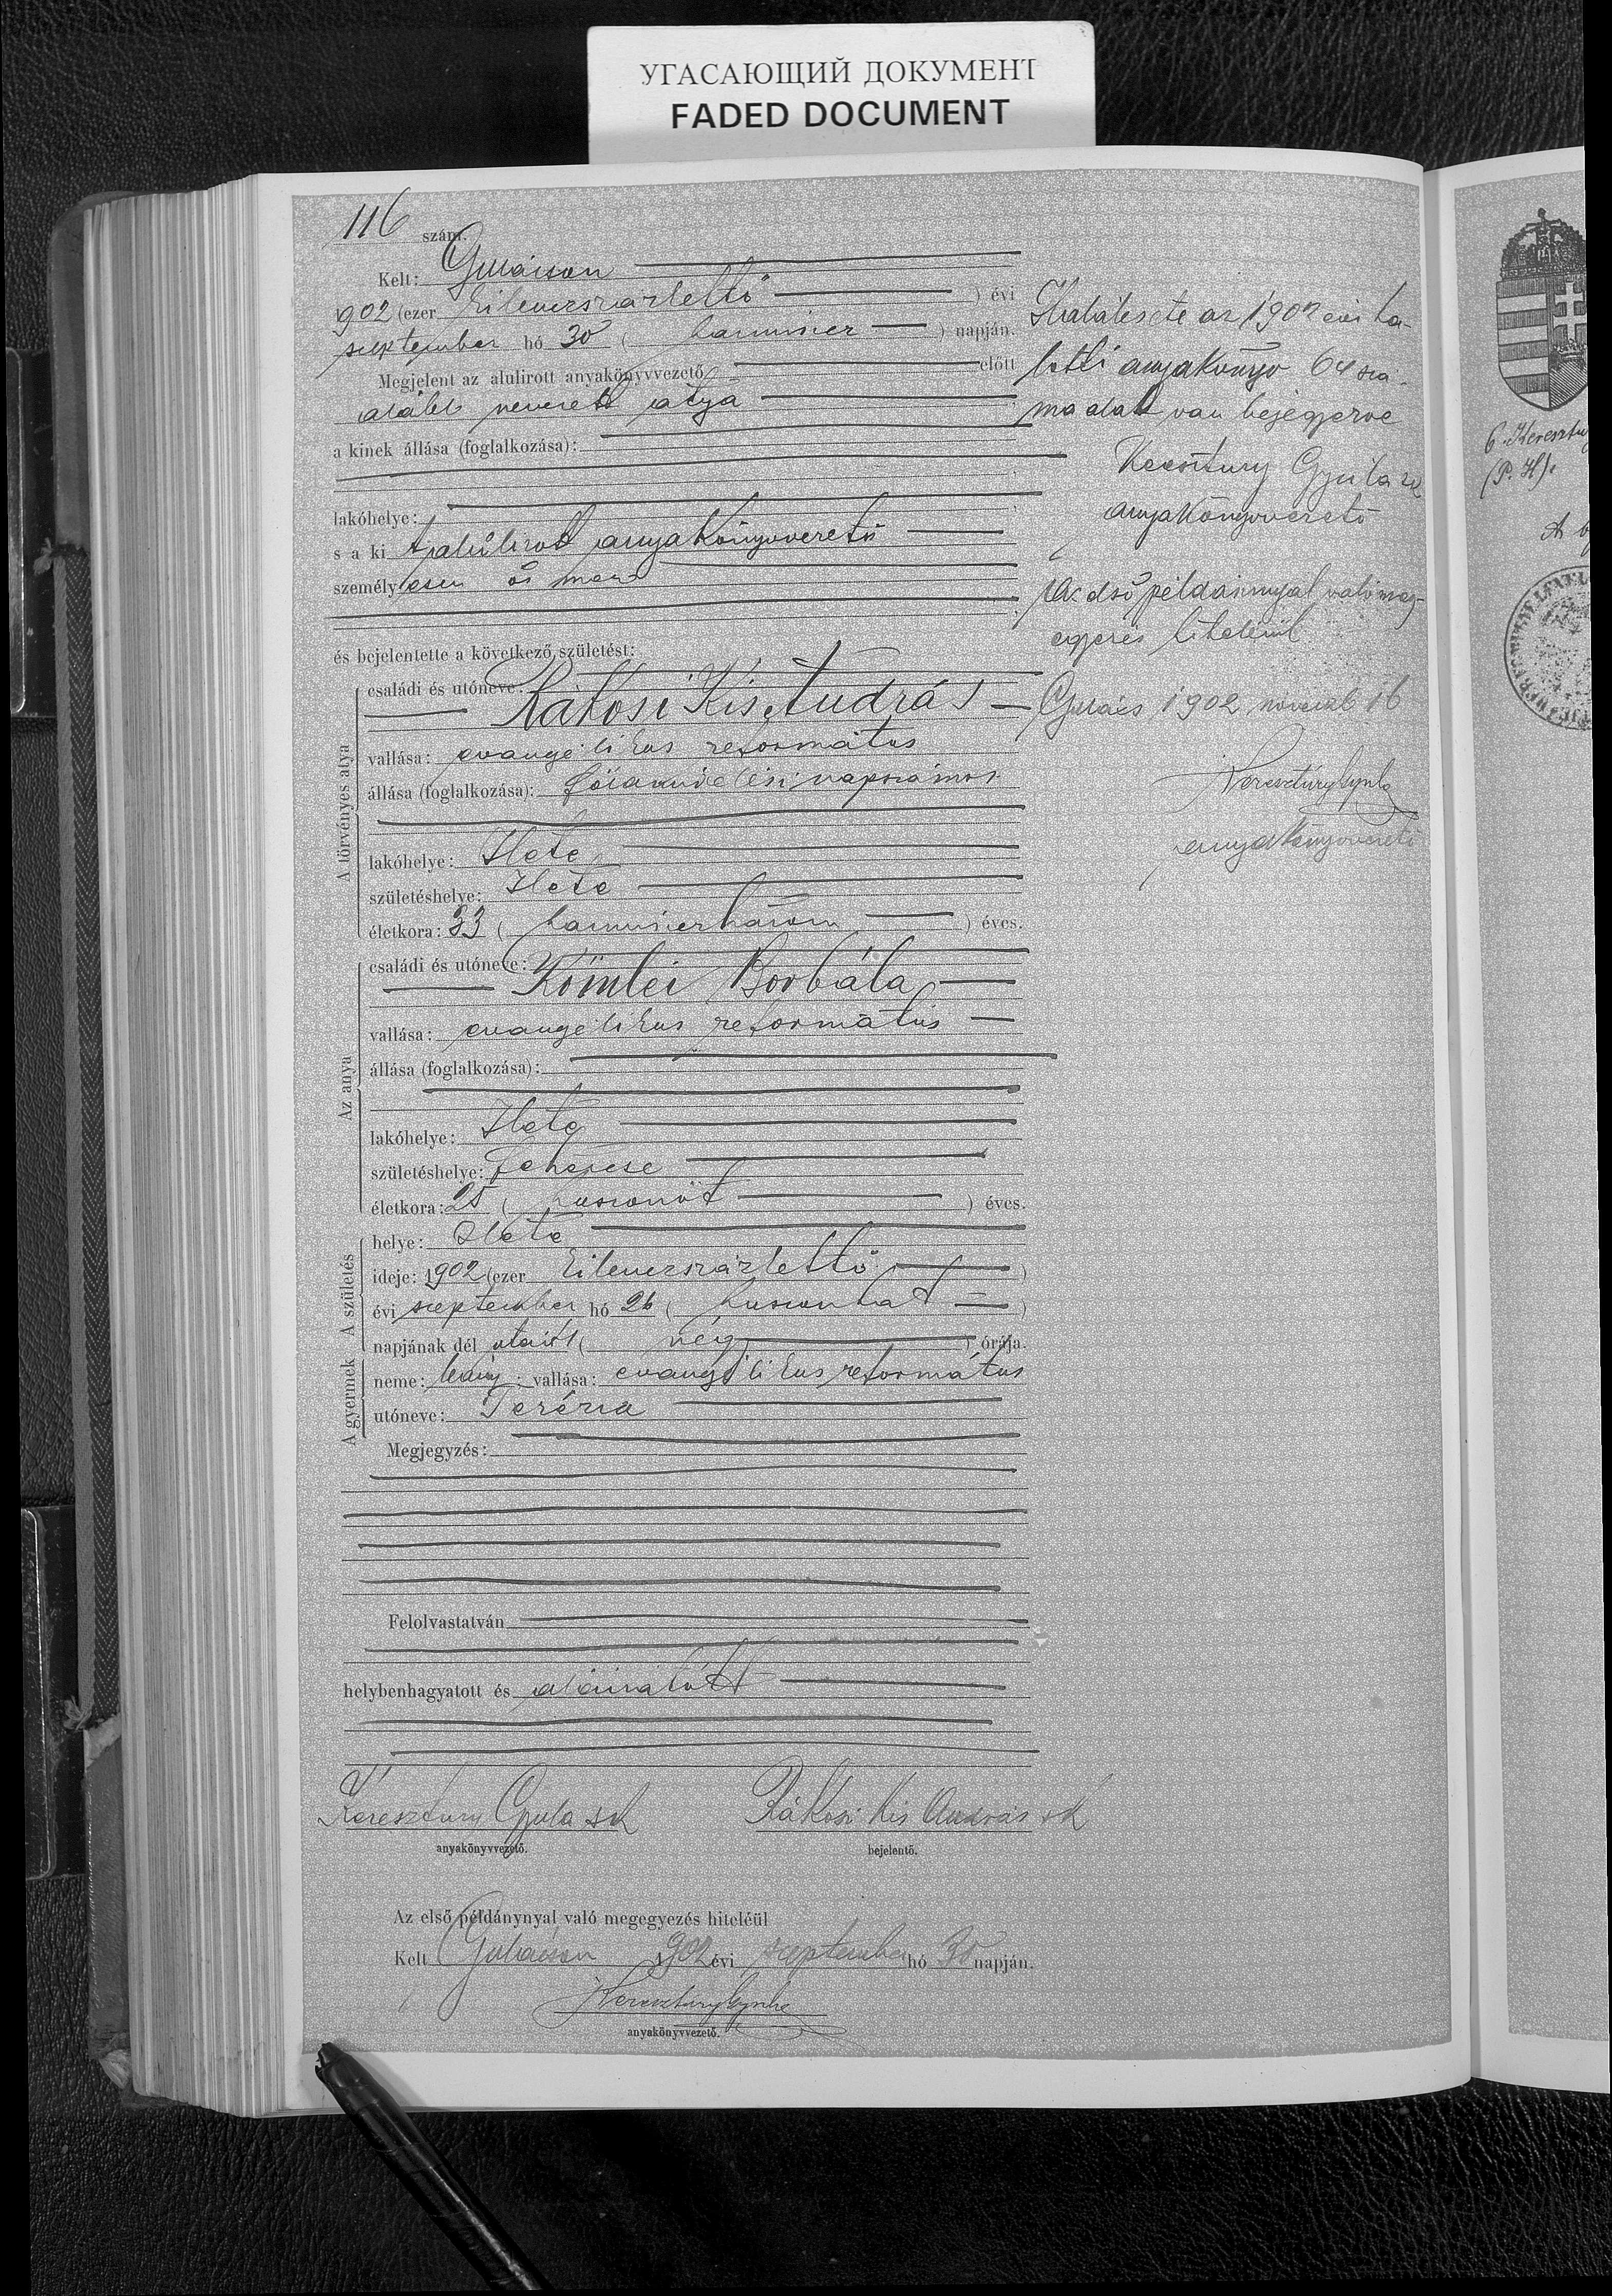 УГАСАЮЩИЙ ДОКУМЕНТ
FADED DOCUMENT
116 szám.
Kelt: Guláison
1902 (ezer kilencszázkettő) évi
szeptember hó 30 ( harmincz ) napján.
Megjelent az alulirott anyakönyvvezető előtt
alább nevezett atya
a kinek állása (foglalkozása):
lakóhelye:
s a ki alulirott anyakönyvvezető
személyesen ismer
és bejelentette a következő születést:
A törvényes atya
családi és utóneve:
Rákosi Kis András
vallása: evangelikus református
állása (foglalkozása): földmüvelési napszámos
lakóhelye: Hete
születéshelye: Hete
életkora: 33 ( harminczhárom ) éves.
Az anya
családi és utóneve:
Kömlei Borbála
vallása: evangelikus református
állása (foglalkozása):
lakóhelye: Hete
születéshelye:
életkora: 25 ( huszonöt ) éves.
A születés
helye: Hete
ideje: 1902 (ezer kilencszázkettő )
évi szeptember hó 26 ( huszonhat )
napjának dél után ( négy ) órája.
A gyermek
neme: leány; vallása: evangelikus református
utóneve: Terézia
Megjegyzés:
Felolvastatván
helybenhagyatott és aláiratott
Keresztury Gyula sk
anyakönyvvezető.
Rákosi Kis András sk
bejelentő.
Az első példánynyal való megegyezés hiteléül
Kelt 1902 évi szeptember hó 30 napján.
Keresztury Gyula
anyakönyvvezető.
Halálesete az 1902 évi ha-
lotti anyakönyv 64 szá-
ma alatt van bejegyezve
Keresztury Gyula sk
anyakönyvvezető
Az első példánynyal való meg-
egyezés hiteléül
1902 november 16
Keresztury Gyula
anyakönyvvezető
(P. H).